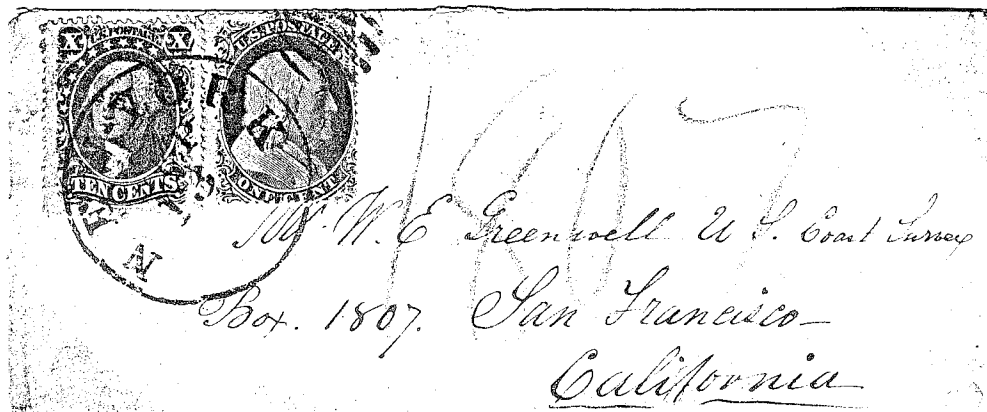 X U.S. POSTAGE X
TEN CENTS
U.S. POSTAGE
ONE CENT
NEW
1807
Mr W. E Greenwell U S. Coast Survey
Box. 1807. San Francisco—
California